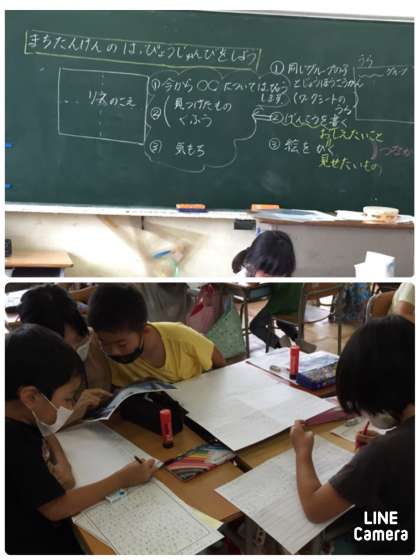 まちたんけんのはっぴょうじゅんびをしよう
リスのこえ
①今から〇〇についてはっぴょう
します
②(見つけたもの
くふう
③ 気もち
①同じグループの子
とじょうほうこうかん
(ワークシートの
うら)
②げんこうを書く
おしえたいこと
③絵をかく
見せたいもの
うら
グループ
つなが
LINE
Camera